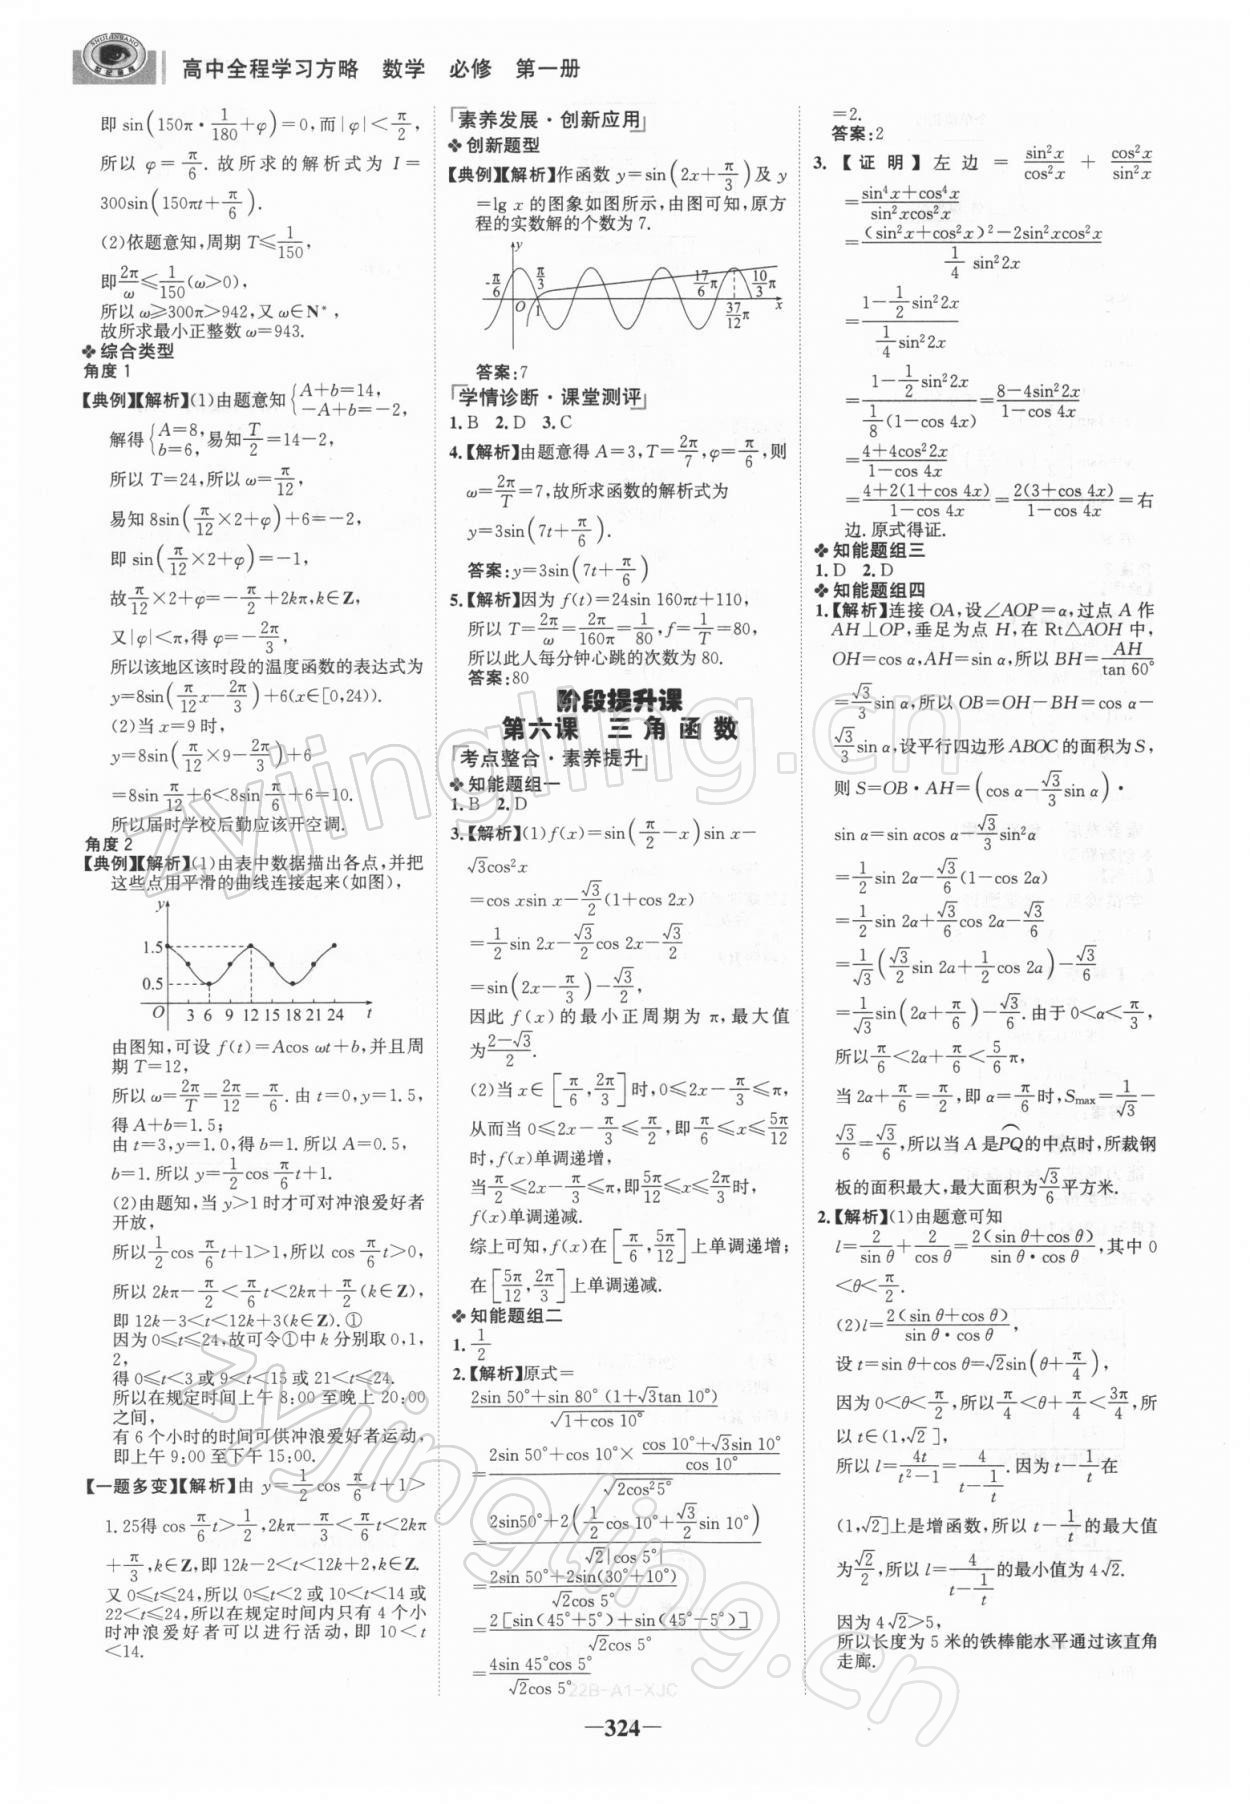 高中全程学习方略 数学 必修 第一册
即 sin(150π·1/180+φ)=0,而|φ|<π/2,
所以 φ=π/6. 故所求的解析式为 I=
300sin(150πt+π/6).
(2)依题意知,周期 T≤1/150,
即2π/ω≤1/150(ω>0),
所以 ω≥300π>942,又 ω∈N*,
故所求最小正整数 ω=943.
❖ 综合类型
角度 1
【典例】【解析】(1)由题意知{A+b=14, -A+b=-2,
解得{A=8, b=6,易知T/2=14-2,
所以 T=24,所以 ω=π/12,
易知 8sin(π/12×2+φ)+6=-2,
即 sin(π/12×2+φ)=-1,
故π/12×2+φ=-π/2+2kπ,k∈Z,
又|φ|<π,得 φ=-2π/3,
所以该地区该时段的温度函数的表达式为
y=8sin(π/12x-2π/3)+6(x∈[0,24)).
(2)当 x=9 时,
y=8sin(π/12×9-2π/3)+6
=8sin π/12+6<8sin π/6+6=10.
所以届时学校后勤应该开空调.
角度 2
【典例】【解析】(1)由表中数据描出各点,并把
这些点用平滑的曲线连接起来(如图),
y
1.5
0.5
O 3 6 9 12 15 18 21 24 t
由图知,可设 f(t)=Acos ωt+b,并且周
期 T=12,
所以 ω=2π/T=2π/12=π/6. 由 t=0,y=1.5,
得 A+b=1.5;
由 t=3,y=1.0,得 b=1. 所以 A=0.5,
b=1. 所以 y=1/2cos π/6t+1.
(2)由题知,当 y>1 时才可对冲浪爱好者
开放,
所以1/2cos π/6t+1>1,所以 cos π/6t>0,
所以 2kπ-π/2<π/6t<2kπ+π/2(k∈Z),
即 12k-3<t<12k+3(k∈Z). ①
因为 0≤t≤24,故可令①中 k 分别取 0,1,
2,
得 0≤t<3 或 9<t<15 或 21<t≤24.
所以在规定时间上午 8:00 至晚上 20:00
之间,
有 6 个小时的时间可供冲浪爱好者运动,
即上午 9:00 至下午 15:00.
【一题多变】【解析】由 y=1/2cos π/6t+1>
1.25得 cos π/6t>1/2,2kπ-π/3<π/6t<2kπ
+π/3,k∈Z,即 12k-2<t<12k+2,k∈Z.
又 0≤t≤24,所以 0≤t<2 或 10<t<14 或
22<t≤24,所以在规定时间内只有 4 个小
时冲浪爱好者可以进行活动,即 10<t
<14.
「素养发展·创新应用」
❖ 创新题型
【典例】【解析】作函数 y=sin(2x+π/3)及 y
=lg x 的图象如图所示,由图可知,原方
程的实数解的个数为 7.
y
-π/6 π/3 17/6π 10/3π
O 1 37/12π x
答案:7
「学情诊断·课堂测评」
1. B 2. D 3. C
4.【解析】由题意得 A=3,T=2π/7,φ=π/6,则
ω=2π/T=7,故所求函数的解析式为
y=3sin(7t+π/6).
答案:y=3sin(7t+π/6)
5.【解析】因为 f(t)=24sin 160πt+110,
所以 T=2π/ω=2π/160π=1/80,f=1/T=80,
所以此人每分钟心跳的次数为 80.
答案:80
阶段提升课
第六课 三角函数
「考点整合·素养提升」
❖ 知能题组一
1. B 2. D
3.【解析】(1)f(x)=sin(π/2-x)sin x-
√3cos²x
=cos xsin x-√3/2(1+cos 2x)
=1/2sin 2x-√3/2cos 2x-√3/2
=sin(2x-π/3)-√3/2,
因此 f(x)的最小正周期为 π,最大值
为2-√3/2.
(2)当 x∈[π/6,2π/3]时,0≤2x-π/3≤π,
从而当 0≤2x-π/3≤π/2,即π/6≤x≤5π/12
时,f(x)单调递增,
当π/2≤2x-π/3≤π,即5π/12≤x≤2π/3时,
f(x)单调递减.
综上可知,f(x)在[π/6,5π/12]上单调递增;
在[5π/12,2π/3]上单调递减.
❖ 知能题组二
1. 1/2
2.【解析】原式=
2sin 50°+sin 80°(1+√3tan 10°)/√1+cos 10°
=2sin 50°+cos 10°×cos 10°+√3sin 10°/cos 10°/√2cos²5°
=2sin50°+2(1/2cos 10°+√3/2sin 10°)/√2|cos 5°|
=2sin 50°+2sin(30°+10°)/√2cos 5°
=2[sin(45°+5°)+sin(45°-5°)]/√2cos 5°
=4sin 45°cos 5°/√2cos 5°
=2.
答案:2
3.【证明】左边=sin²x/cos²x+cos²x/sin²x
=sin⁴x+cos⁴x/sin²xcos²x
=(sin²x+cos²x)²-2sin²xcos²x/1/4 sin²2x
=1-1/2sin²2x/1/4sin²2x
=1-1/2sin²2x/1/8(1-cos 4x)=8-4sin²2x/1-cos 4x
=4+4cos²2x/1-cos 4x
=4+2(1+cos 4x)/1-cos 4x=2(3+cos 4x)/1-cos 4x=右
边. 原式得证.
❖ 知能题组三
1. D 2. D
❖ 知能题组四
1.【解析】连接 OA,设∠AOP=α,过点 A 作
AH⊥OP,垂足为点 H,在 Rt△AOH 中,
OH=cos α,AH=sin α,所以 BH=AH/tan 60°
=√3/3sin α,所以 OB=OH-BH=cos α-
√3/3sin α,设平行四边形 ABOC 的面积为 S,
则 S=OB·AH=(cos α-√3/3sin α)·
sin α=sin αcos α-√3/3sin²α
=1/2sin 2α-√3/6(1-cos 2α)
=1/2sin 2α+√3/6cos 2α-√3/6
=1/√3(√3/2sin 2α+1/2cos 2α)-√3/6
=1/√3sin(2α+π/6)-√3/6. 由于 0<α<π/3,
所以π/6<2α+π/6<5/6π,
当 2α+π/6=π/2,即 α=π/6时,Smax=1/√3-
√3/6=√3/6,所以当 A 是PQ⌒的中点时,所裁钢
板的面积最大,最大面积为√3/6平方米.
2.【解析】(1)由题意可知
l=2/sin θ+2/cos θ=2(sin θ+cos θ)/sin θ·cos θ,其中 0
<θ<π/2.
(2)l=2(sin θ+cos θ)/sin θ·cos θ,
设 t=sin θ+cos θ=√2sin(θ+π/4),
因为 0<θ<π/2,所以π/4<θ+π/4<3π/4,所
以 t∈(1,√2],
所以 l=4t/t²-1=4/t-1/t. 因为 t-1/t在
(1,√2]上是增函数,所以 t-1/t的最大值
为√2/2,所以 l=4/t-1/t的最小值为 4√2.
因为 4√2>5,
所以长度为 5 米的铁棒能水平通过该直角
走廊.
22B-A1-XJC
—324—
zyjingling.com
zyjingling.cn